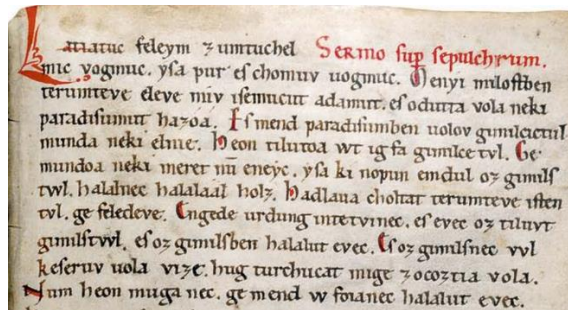 Latiatuc feleym ꝫ zumtuchel Sermo sup sepulchrum.
mic vogmuc. ysa pur es chomuv uogmuc. Menyi miloſtben
terumteve eleve miv iſemucut adamut. es odutta vola neki
paradiſumut hazoa. Es mend paradiſumben uolov gimilcictul
munda neki elnie. Heon tilutoa wt ig fa gimilce tvl. Ge
mundoa neki meret nū eneyc. yſa ki nopun emdul oz gimilſ
twl. halalnec halalaal holz. Hadlaua choltat terumteve iſten
tvl. ge feledeve. Engede urdung intetvinec. es evec oz tiluvt
gimilſtwl. es oz gimilſben halalut evec. Es oz gimilſnec vvl
keſeruv uola vize. hug turchucat mige zocoztia vola.
Num heon muga nec. ge mend w foianec halalut evec.